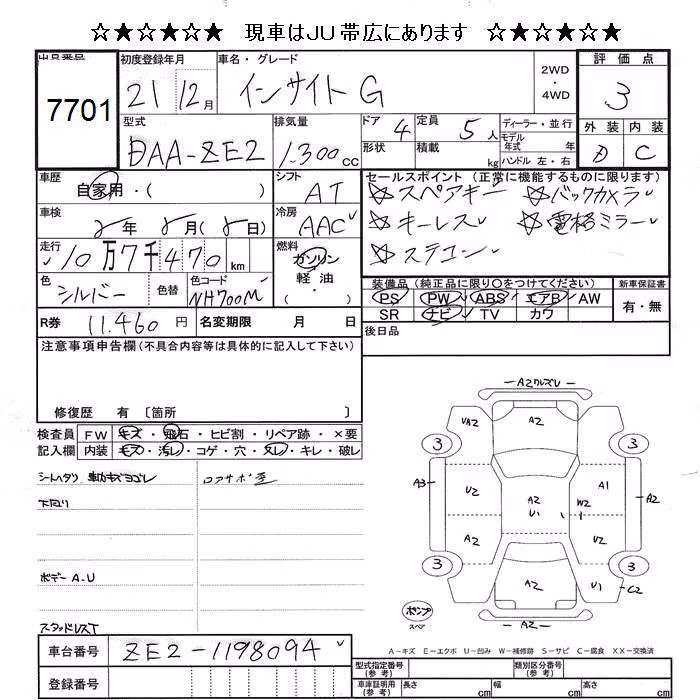 ☆★☆★☆★ 現車はＪＵ帯広にあります ☆★☆★☆★
出品番号
7701
初度登録年月
21 12月
車名・グレード
インサイト G
2WD
・
4WD
評価点
3
型式
DAA-ZE2
排気量
1.300 cc
ドア 4
形状
定員 5人
積載 kg
ディーラー・並行
モデル年式 年
ハンドル 左・右
外装 内装
D C
車歴
自家用・( )
シフト
AT
セールスポイント（正常に機能するものに限ります）
☆スペアキー ☆バックカメラ
☆キーレス ☆電格ミラー
☆ステコン
車検
年 月( 日)
冷房
AAC
走行
10万7千470 km
燃料
ガソリン
軽油
・
( )
色
シルバー
色替
色コード
NH700M
装備品（純正品に限り○をつけてください）
PS PW ABS エアB AW
SR ナビ TV カワ
新車保証書
有・無
R券 11.460 円
名変期限 月 日
後日品
注意事項申告欄（不具合内容等は具体的に記入して下さい）
修復歴 有 〔箇所 〕
検査員記入欄
FW キズ・飛石・ヒビ割・リペア跡・×要
内装 キズ・汚レ・コゲ・穴・スレ・キレ・破レ
シートヘタリ
下回り
ボデーA-U
スタッドレスT
A2ワレズレ
VA2 A2
3 3
A3 U2 A2 U1 A1 W2 A2
A2 U2
3 3
A2 U1 C2
A2
ポンプ
スペア
A－キズ E－エクボ U－凹み W－補修跡 S－サビ C－腐食 XX－交換済
車台番号 ZE2-1198094
登録番号
型式指定番号（参考）
類別区分番号（参考）
車庫証明用（参考） 長さ cm 幅 cm 高さ cm